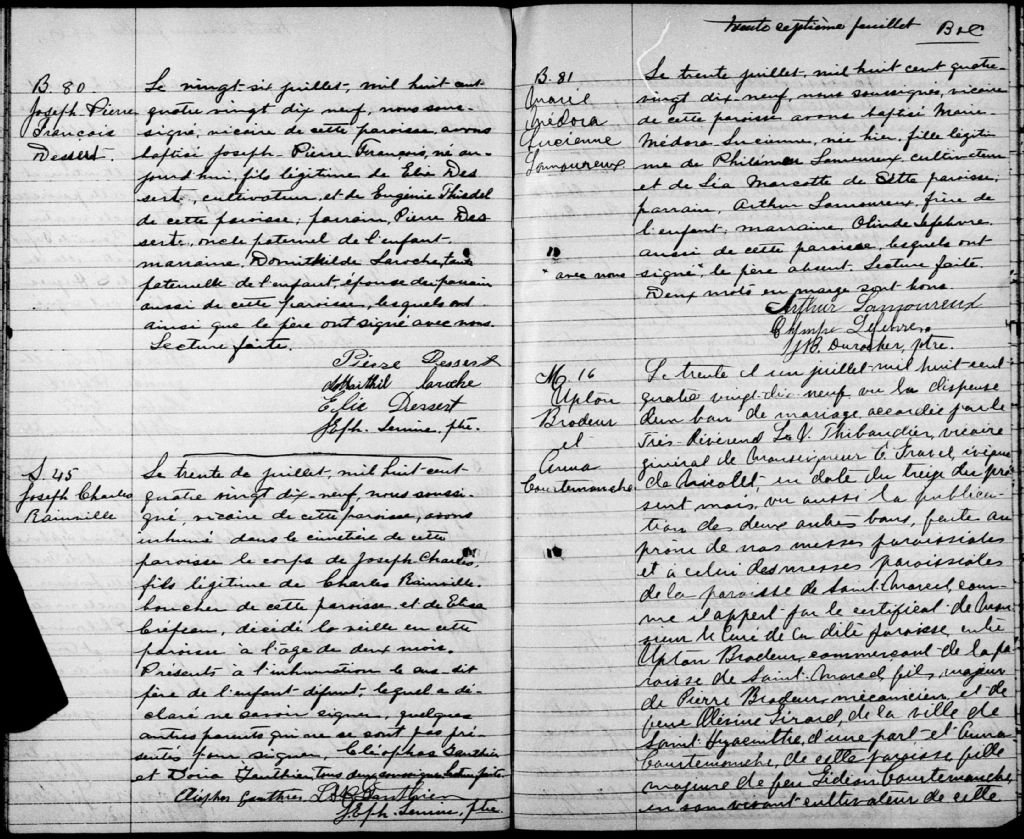 B. 80.
Joseph Pierre
François
Dessert.
Le vingt-six juillet, mil huit cent
quatre vingt dix neuf, nous sous-
signé, vicaire de cette paroisse, avons
baptisé Joseph Pierre François, né au-
jourd'hui, fils légitime de Elie Des
sert, cultivateur, et de Eugénie Thiedel
de cette paroisse; parrain, Pierre Des
sert, oncle paternel de l'enfant,
marraine, Domithilde Laroche, tante
paternelle de l'enfant, épouse du parrain
aussi de cette paroisse, lesquels ont
ainsi que le père ont signé avec nous.
Lecture faite.
Pierre Dessert
laroche
Elie Dessert
Jeph. ptre.
S. 45
Joseph Charles
Rainville
Le trente de juillet, mil huit cent-
quatre vingt dix-neuf, nous soussi-
gné, vicaire de cette paroisse, avons
inhumé dans le cimetère de cette
paroisse le corps de Joseph Charles,
fils légitime de Charles Rainville,
boucher de cette paroisse, et de Eliza
Crépeau, décédé la veille en cette
paroisse à l'âge de deux mois.
Présents à l'inhumation le sus-dit
père de l'enfant défunt, lequel a dé-
claré ne savoir signer, quelques
autres parents qui ne se sont pas pré-
sentés pour signer, Cléophas Gauthier
et Doria Gauthier tous deux soussignés Lecture faite.
Cléophas Gauthier Gauthier
Jeph. ptre
trente septième feuillet
B. 81
Marie
Médora
Lucienne
Lamoureux
"avec nous
Le trente juillet, mil huit cent quatre-
vingt dix-neuf, nous soussigné, vicaire
de cette paroisse avons baptisé Marie-
Médora-Lucienne, née hier, fille légiti-
me de Philémon Lamoureux, cultivateur
et de Léa Marcotte de cette paroisse;
parrain, Arthur Lamoureux, frère de
l'enfant, marraine, Olinde Lefebvre
aussi de cette paroisse, lesquels ont
signé", le père absent. Lecture faite.
Deux mots en marge sont bons.
Arthur Lamoureux
J.B. Durocher, ptre.
M. 16
Upton
Brodeur
et
Anna
Courtemanche
Le trente et un juillet mil huit cent
quatre vingt-dix neuf, vu la dispense
d'un ban de mariage accordée par le
Très-Révérend Thibaudier, vicaire
général de Monseigneur E. Gravel, évêque
de Nicolet, en date du treize du pré
sent mois, vu aussi la publica-
tion des deux autres bans, faite au
prône de nos messes paroissiales
et à celui des messes paroissiales
de la paroisse de Saint-Marcel, com-
me il appert par le certificat de Mon
sieur le Curé de la dite paroisse, entre
Upton Brodeur, commerçant de la pa
roisse de Saint-Marcel, fils majeur
de Pierre Brodeur, mécanicien, et de
feue Olésine Girard, de la ville de
Saint Hyacinthe, d'une part et Anna
Courtemanche, de cette paroisse, fille
majeure de feu Gédéon Courtemanche
en son vivant cultivateur de cette